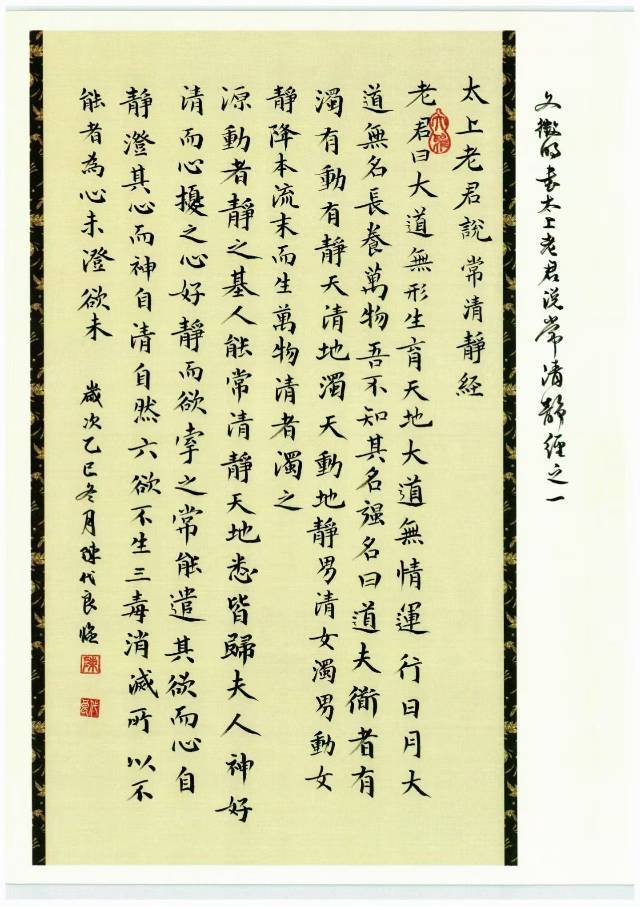 文徵明書太上老君说常清靜經之一
太上老君說常清靜経
老君曰大道無形生育天地大道無情運行日月大
道無名長養萬物吾不知其名强名曰道夫衜者有
濁有動有靜天清地濁天動地靜男清女濁男動女
靜降本流末而生萬物清者濁之
源動者靜之基人能常清靜天地悉皆歸夫人神好
清而心擾之心好靜而欲牽之常能遣其欲而心自
靜澄其心而神自清自然六欲不生三毒消滅所以不
能者為心未澄欲未
歲次乙巳冬月陳代良臨
陳